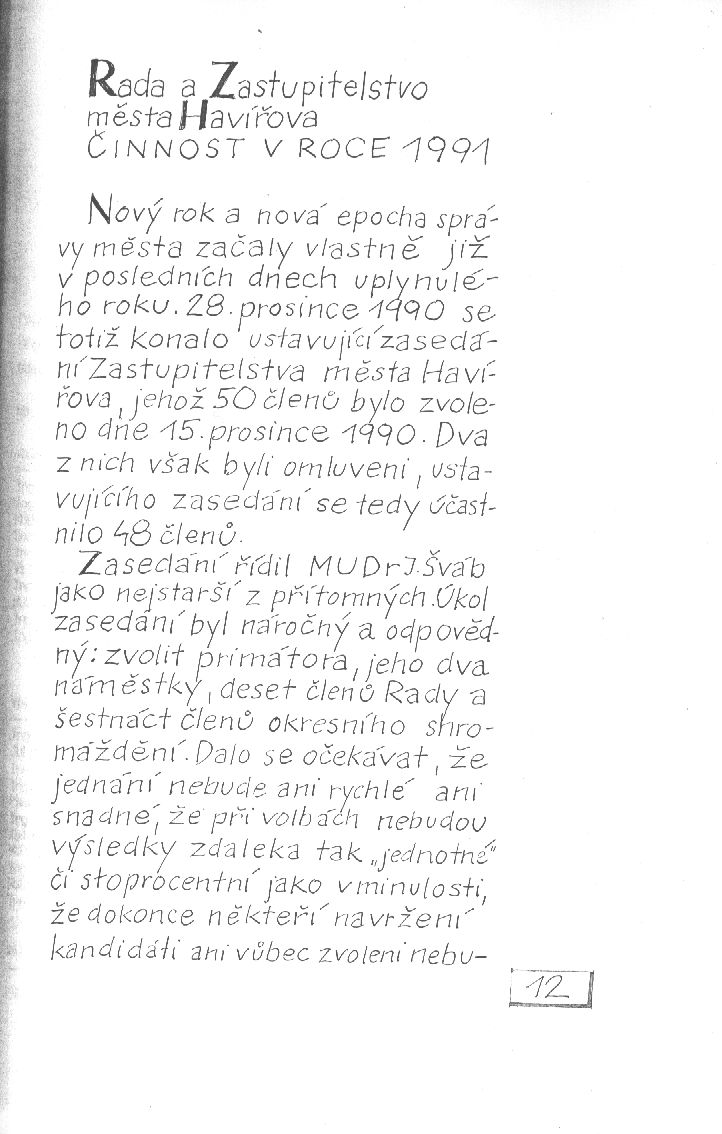 Rada a Zastupitelstvo
města Havířova
ČINNOST V ROCE 1991
Nový rok a nová epocha sprá-
vy města začaly vlastně již
v posledních dnech uplynulé-
ho roku. 28. prosince 1990 se
totiž konalo ustavující zasedá-
ní Zastupitelstva města Haví-
řova, jehož 50 členů bylo zvole-
no dne 15. prosince 1990. Dva
z nich však byli omluveni, usta-
vujícího zasedání se tedy účast-
nilo 48 členů.
Zasedání řídil MUDr J. Šváb
jako nejstarší z přítomných. Úkol
zasedání byl náročný a odpověd-
ný: zvolit primátora, jeho dva
náměstky, deset členů Rady a
šestnáct členů okresního shro-
máždění. Dalo se očekávat, že
jednání nebude ani rychlé ani
snadné, že při volbách nebudou
výsledky zdaleka tak „jednotné"
či stoprocentní jako v minulosti,
že dokonce někteří navržení
kandidáti ani vůbec zvoleni nebu-
12